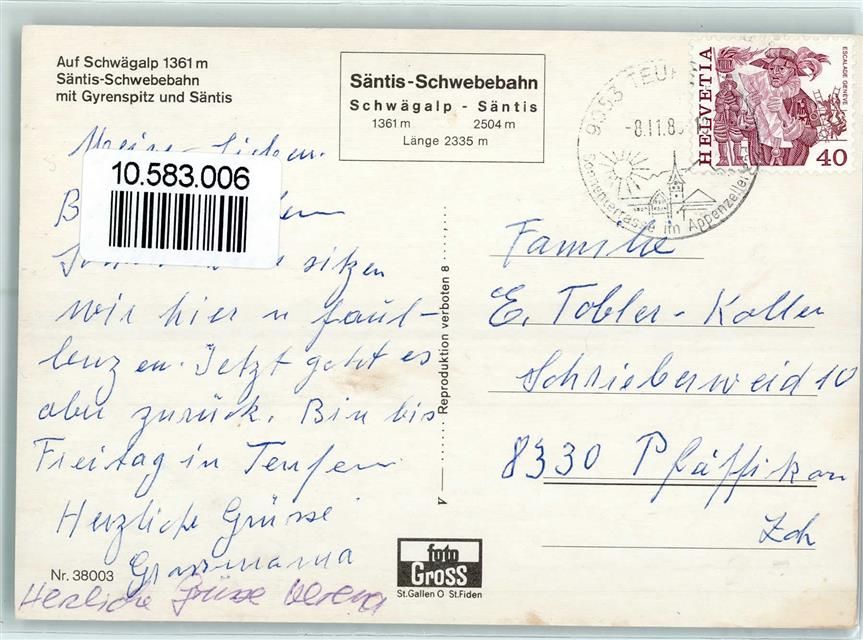 Auf Schwägalp 1361 m
Säntis-Schwebebahn
mit Gyrenspitz und Säntis
Säntis-Schwebebahn
Schwägalp - Säntis
1361 m 2504 m
Länge 2335 m
9053 TEUF
-8.11.8
Sonnenterrasse im Appenzeller
HELVETIA
ESCALADE GENÈVE
40
Meine Lieben.
10.583.006
sitzen
wir hier u faul-
lenzen. Jetzt geht es
aber zurück. Bin bis
Freitag in Teufen
Herzliche Grüsse
Grossmama
Herzliche Grüsse Verena
Nr. 38003
Reproduktion verboten 8
foto
Gross
St.Gallen O St.Fiden
Familie
E. Tobler-Koller
Schrieberweid 10
8330 Pfäffikon
Zch